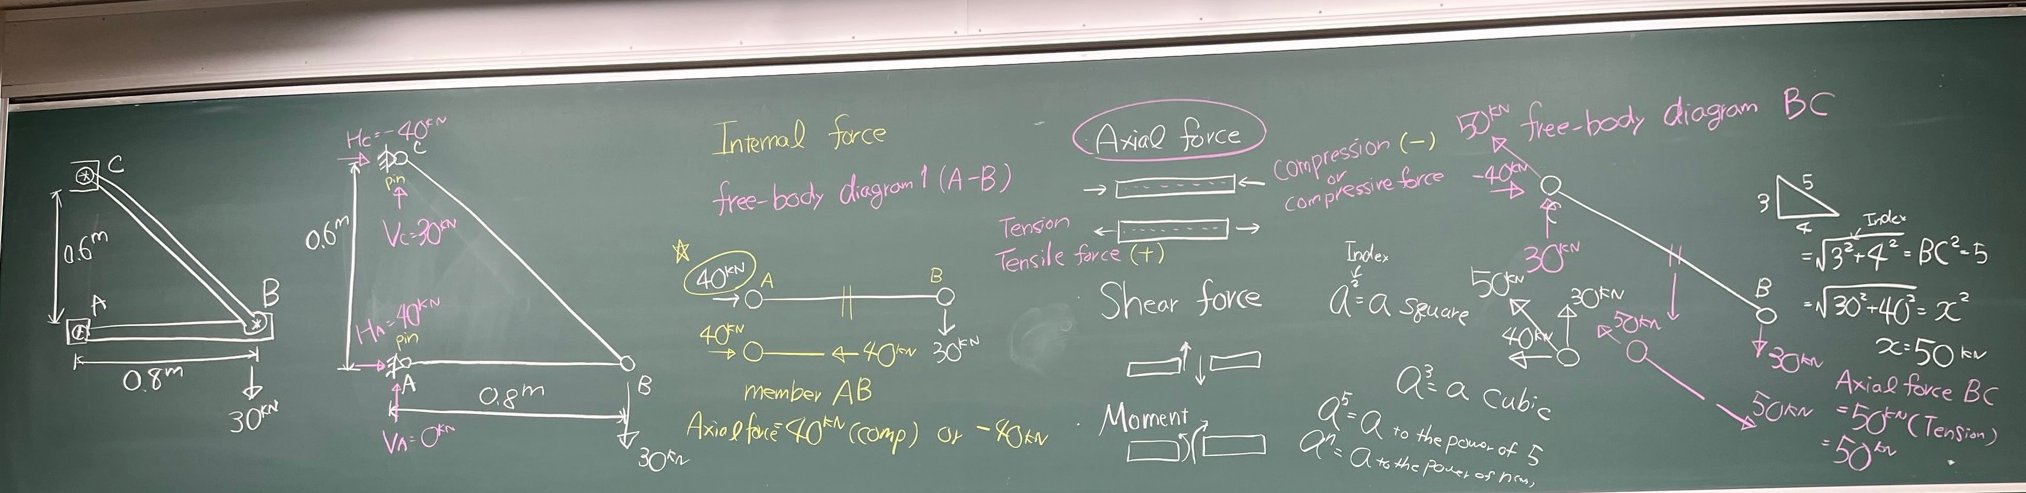 C
0.6m
A
B
0.8m
30KN
Hc=-40KN
C
pin
Vc=30KN
0.6m
HA=40KN
pin
A
VA=0KN
0.8m
B
30KN
Internal force
free-body diagram 1 (A-B)
40KN
A
B
40KN
40KN
30KN
member AB
Axial force=40KN (comp) or -40KN
Axial force
Compression (-)
or
compressive force
Tension
Tensile force (+)
Shear force
Moment
Index
a²=a square
a³=a cubic
a⁵=a to the power of 5
aⁿ=a to the power of n
free-body diagram BC
50KN
-40KN
C
30KN
B
30KN
50KN
30KN
40KN
50KN
50KN
3
5
4
Index
=√3²+4²=BC²=5
=√30²+40²=x²
x=50KN
Axial force BC
=50KN (Tension)
=50KN